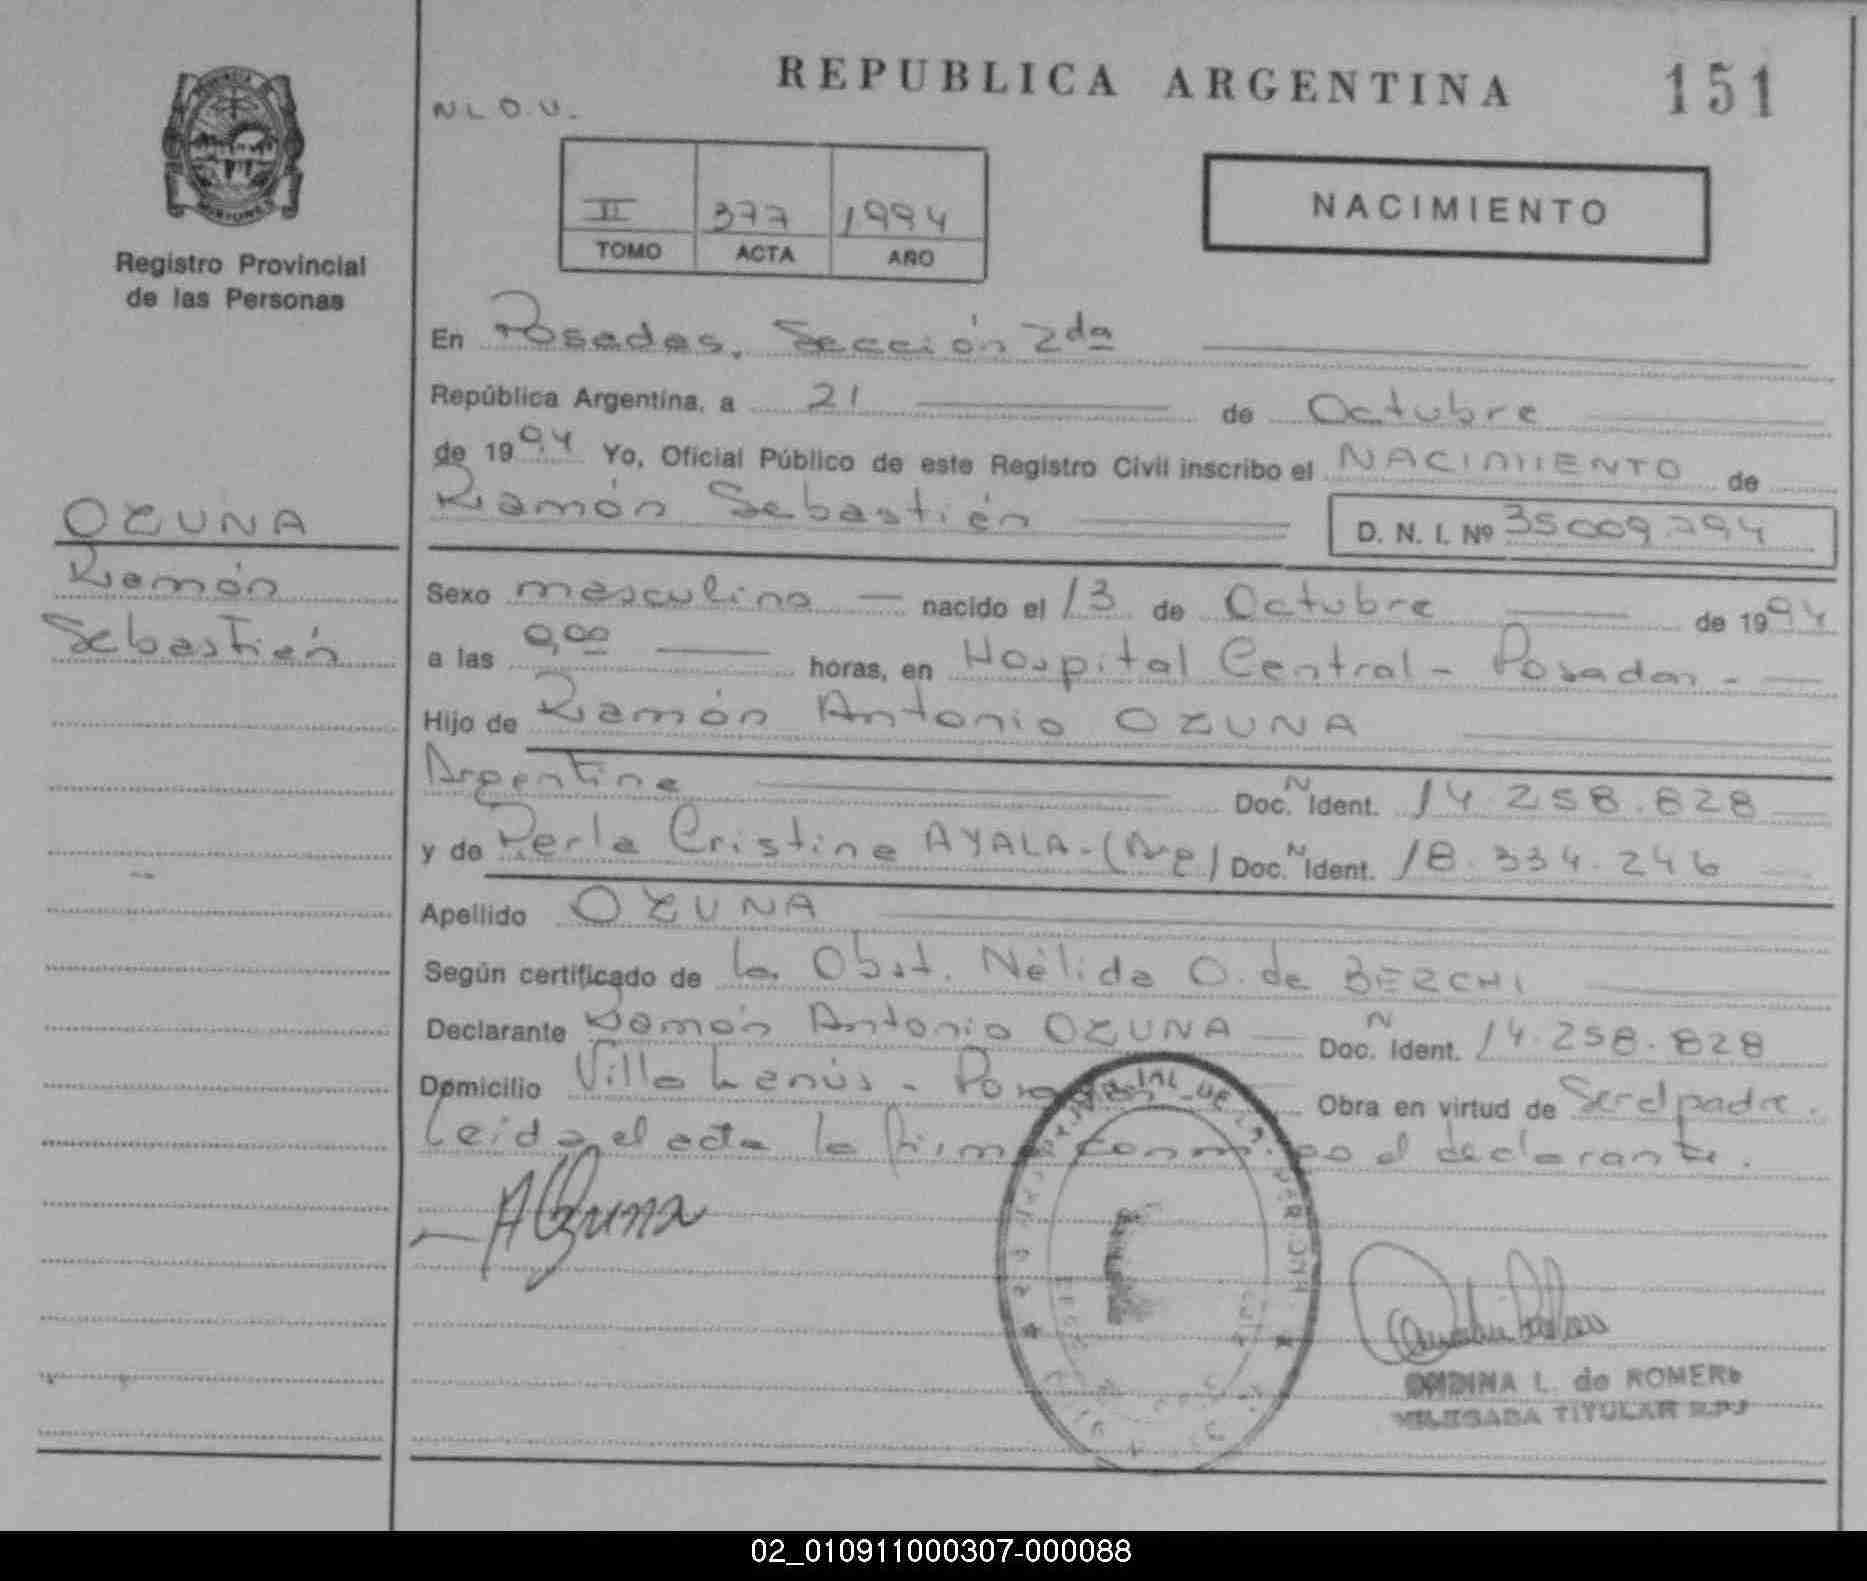 REPUBLICA ARGENTINA
151
N L O. U.
II 377 1994
TOMO ACTA AÑO
NACIMIENTO
Registro Provincial
de las Personas
OZUNA
Ramón
Sebastián
En Posadas, Sección 2da
República Argentina, a 21 de Octubre
de 1994 Yo, Oficial Público de este Registro Civil inscribo el NACIMIENTO de
Ramón Sebastián D. N. I. Nº 35009.294
Sexo masculino nacido el 13 de Octubre de 1994
a las 0,00 horas, en Hospital Central - Posadas.-
Hijo de Ramón Antonio OZUNA
Argentina Doc. N Ident. 14.258.828
y de Perla Cristina AYALA-(Arg) Doc. N Ident. 18.334.246
Apellido OZUNA
Según certificado de la Obst. Nélida O. de BERCHI
Declarante Ramón Antonio OZUNA Doc. N Ident. 14.258.828
Domicilio Villa Lanús - Posadas Obra en virtud de Ser el padre.
Leída el acta la firma conmigo el declarante.
A Ozuna
ONDINA L. de ROMERO
DELEGADA TITULAR
02_010911000307-000088